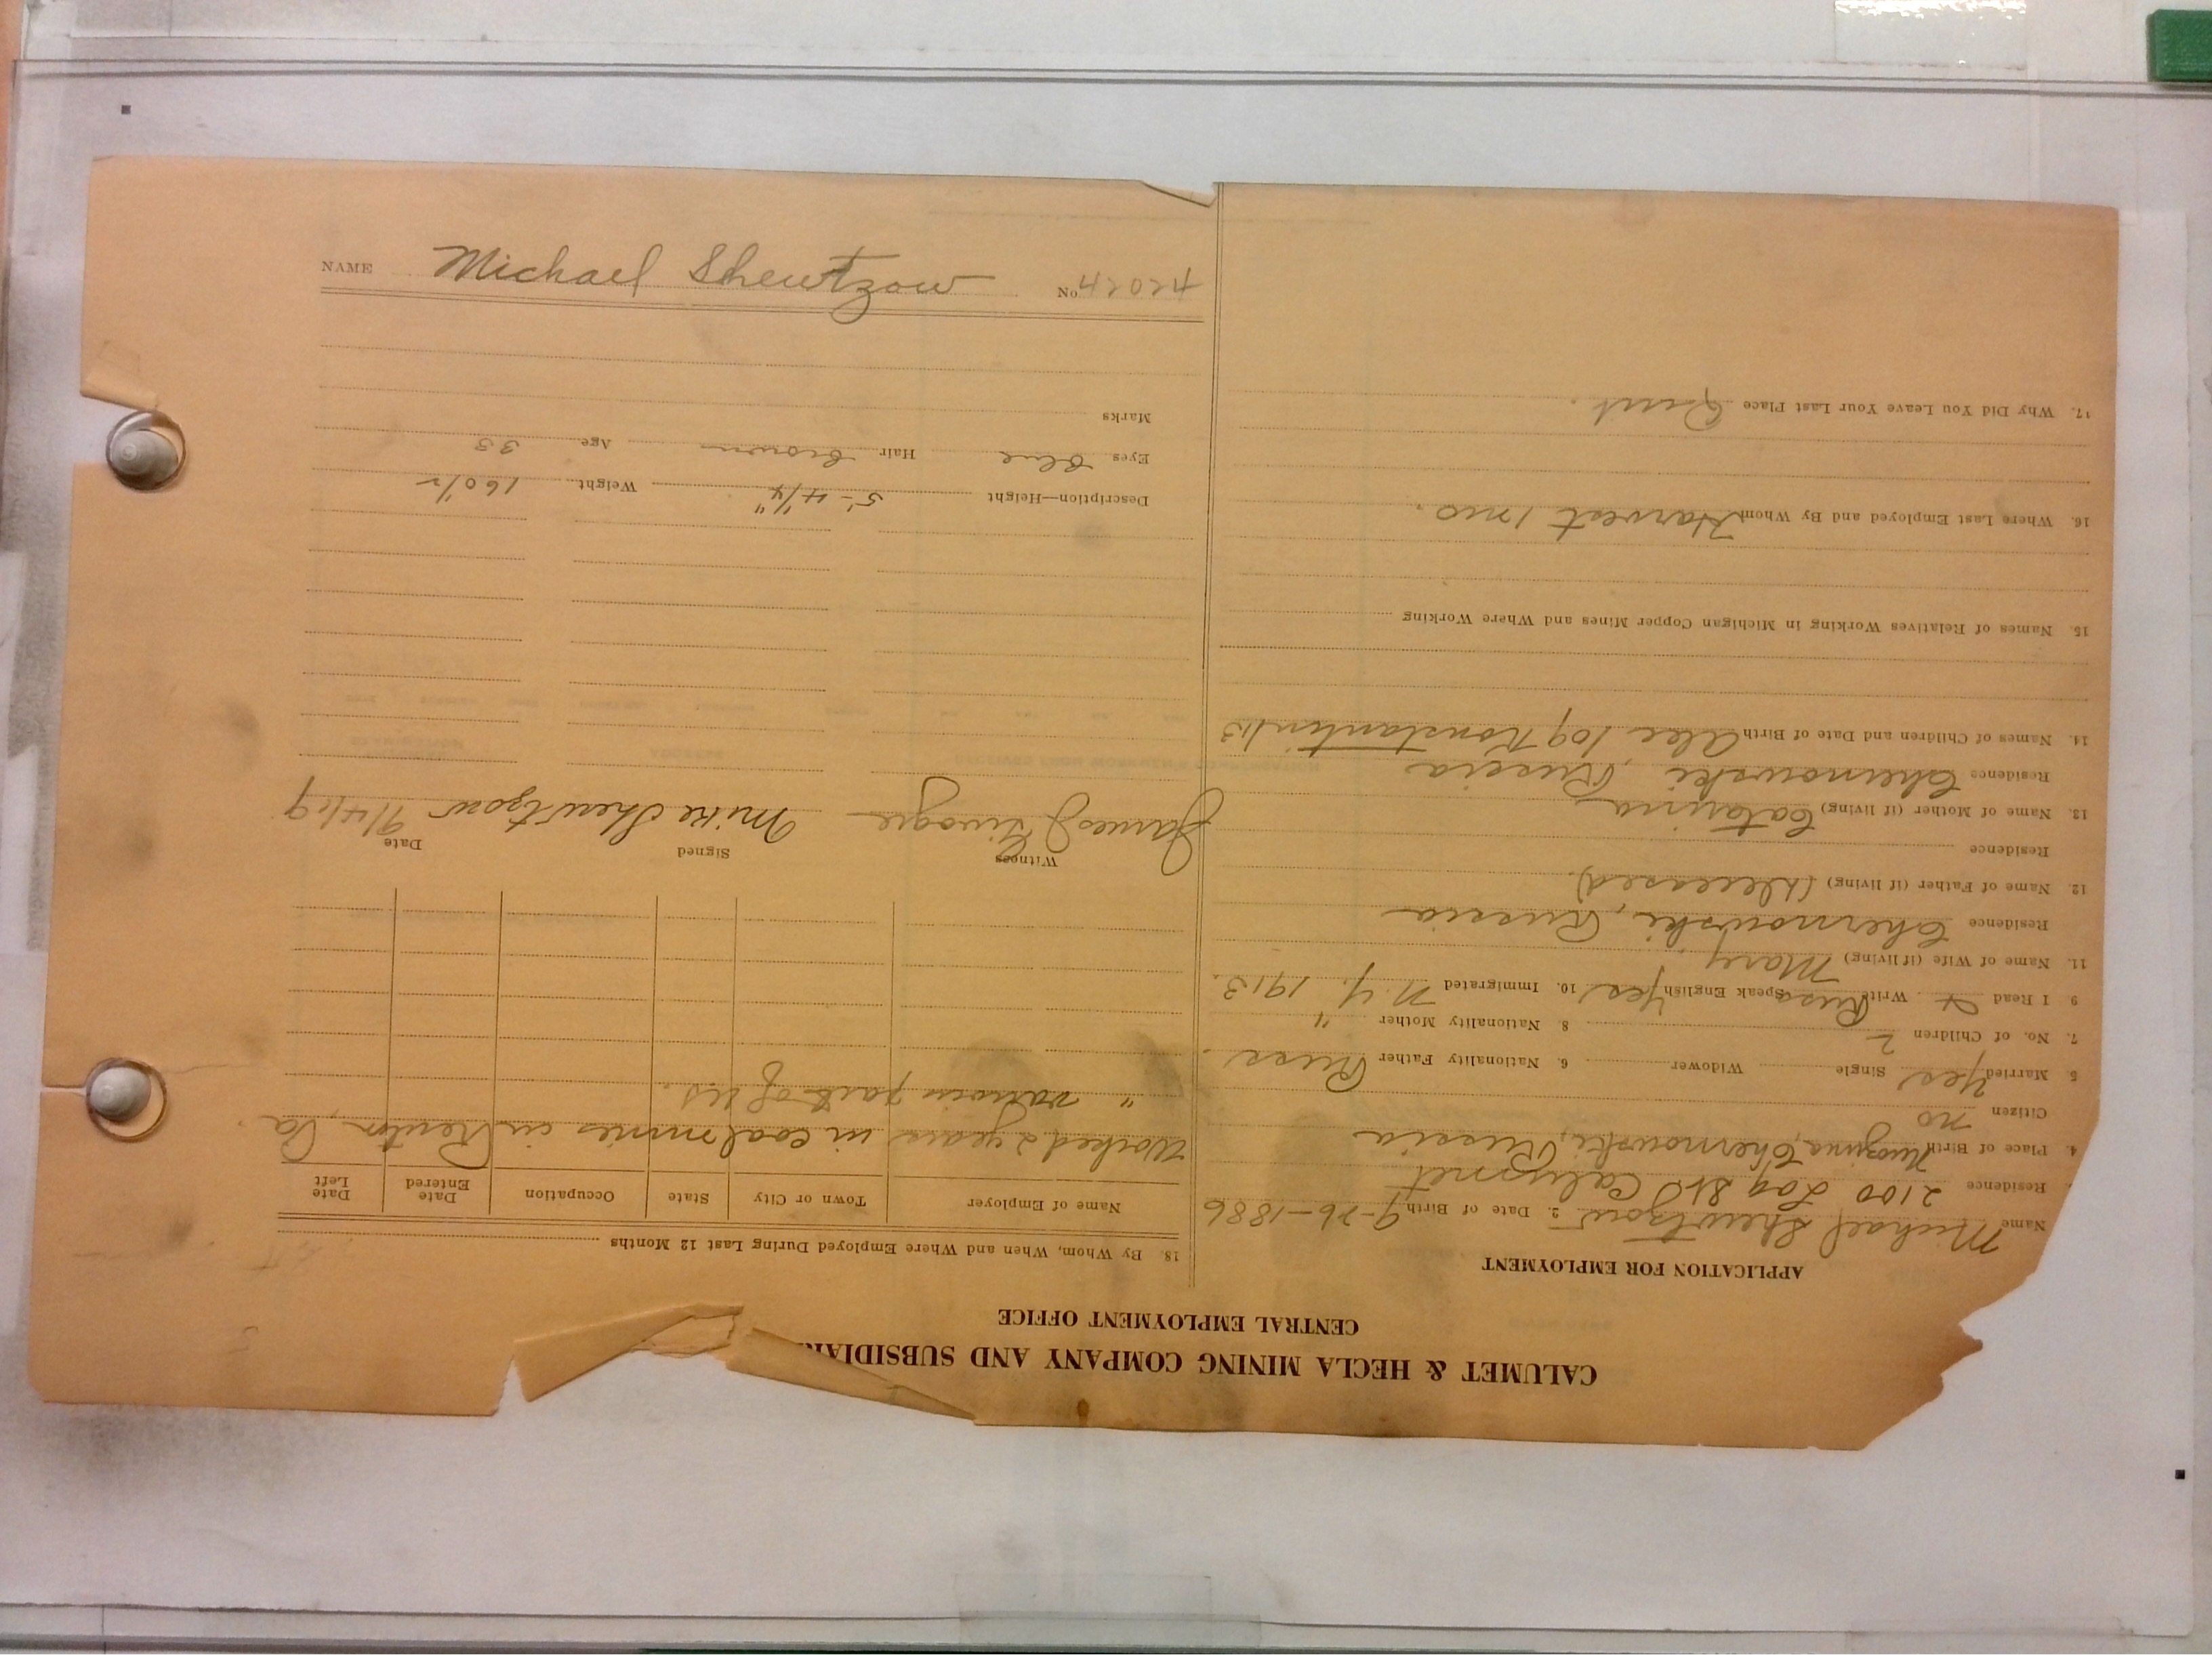 CALUMET & HECLA MINING COMPANY AND SUBSIDIAR
CENTRAL EMPLOYMENT OFFICE
APPLICATION FOR EMPLOYMENT
Name Michael Shewtzow 2. Date of Birth 9-26-1886
Residence 2100 Log St Calumet
4. Place of Birth Chernowski, Russia
Citizen no
5 Married yes Single Widower 6. Nationality Father Russ.
7. No. of Children 2 8 Nationality Mother "
9 I Read Write Russ Speak English yes 10. Immigrated N.Y. 1913.
11. Name of Wife (if living) Mary
Residence Chernowski, Russia
12. Name of Father (if living) (Deceased).
Residence
13. Name of Mother (if living) Catarina
Residence Chernowski, Russia
14. Names of Children and Date of Birth Alec /09 Konstantin /13
15. Names of Relatives Working in Michigan Copper Mines and Where Working
16. Where Last Employed and By Whom Harvest 1 mo.
17. Why Did You Leave Your Last Place Quit.
18. By Whom, When and Where Employed During Last 12 Months
Name of Employer Town or City State Occupation Date Entered Date Left
Worked 2 years in coal mines in Renton, Pa.
" various part of U.S.
Witness Signed Date
James J Mike Shewtzow 9/4/19
Description—Height 5'-4 1/4" Weight 160 1/2
Eyes blue Hair brown Age 33
Marks
NAME Michael Shewtzow No 42024